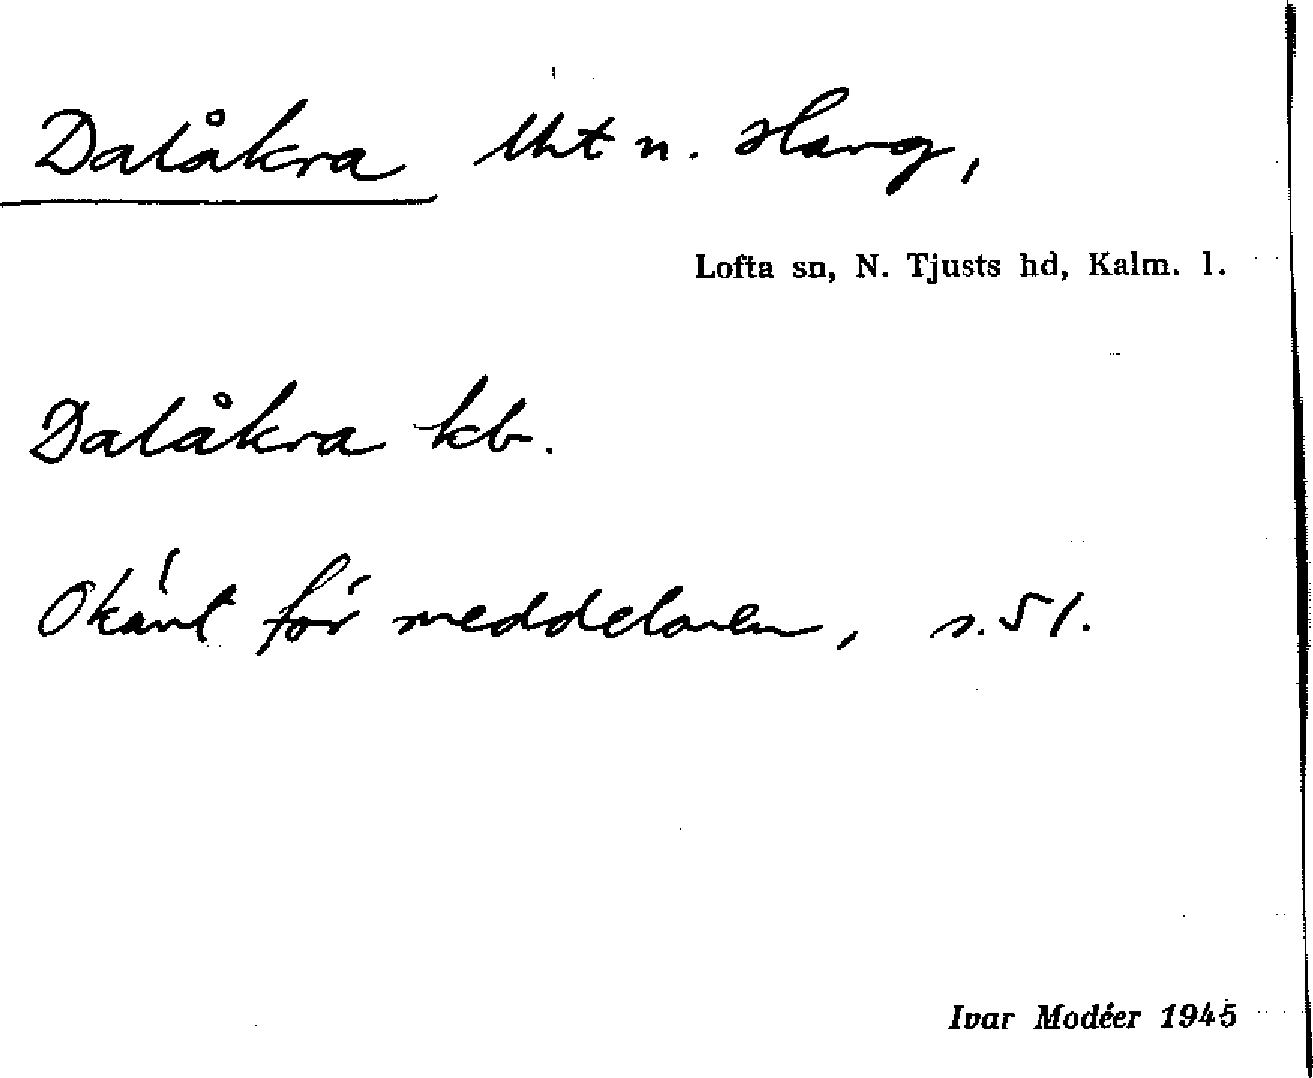 Dalåkra lht n. Harg,
Lofta sn, N. Tjusts hd, Kalm. l.
Dalåkra kb.
Okänt för meddelaren, s. 51.
Ivar Modéer 1945